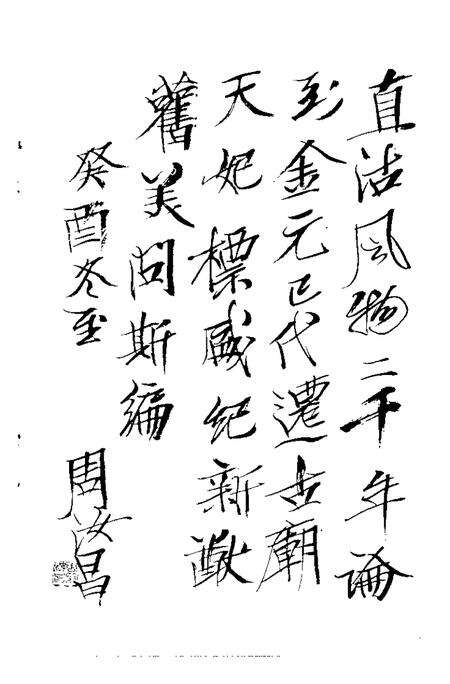 直沽风物二千年論
到金元已代遷古廟
天妃標盛紀新猷
舊美問斯編
癸酉冬至
周汝昌